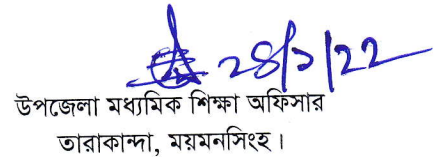 ২৪/১/২২
উপজেলা মধ্যমিক শিক্ষা অফিসার
তারাকান্দা, ময়মনসিংহ।